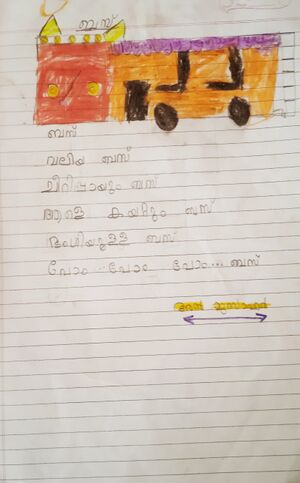 ബസ്
ബസ്
വലിയ ബസ്
ചീറിപ്പായും ബസ്
ആളെ കയറ്റും ബസ്
ഭംഗിയുള്ള ബസ്
പോം...പോം... പോം... ബസ്